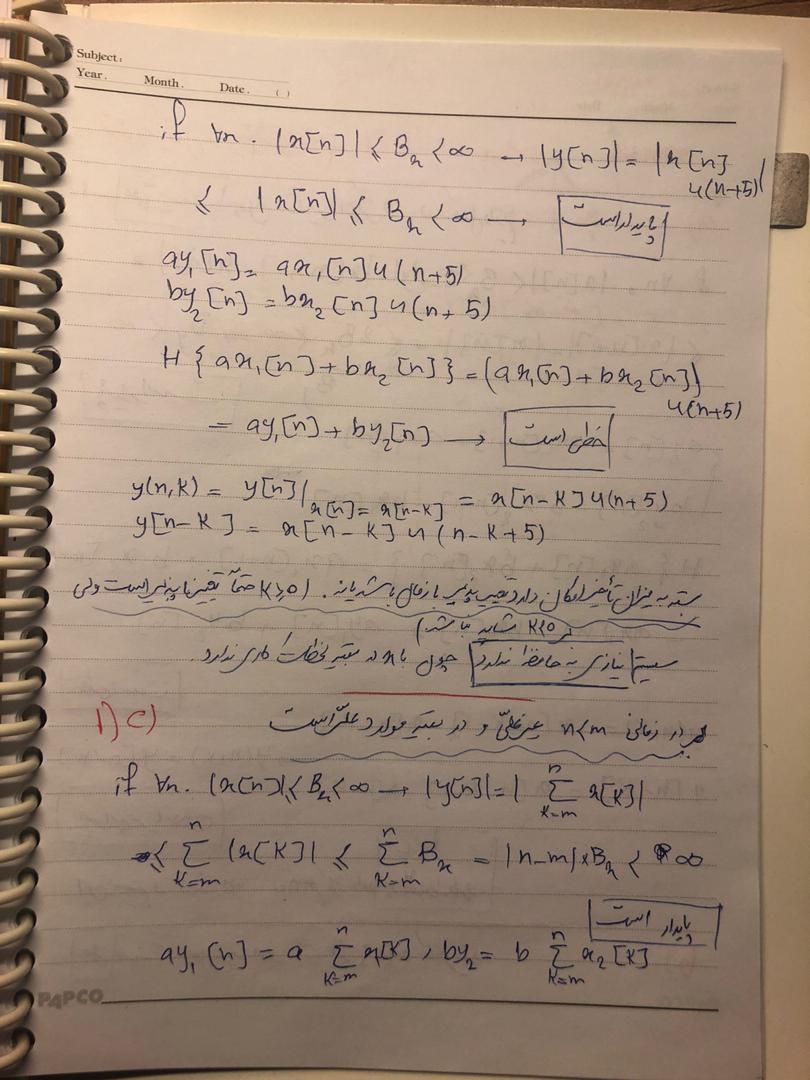 Subject:
Year. Month. Date. ( )
if ∀n. |x[n]| ≤ Bx < ∞ → |y[n]| = |x[n] u(n+5)|
≤ |x[n]| ≤ Bx < ∞ → پایدار است
ay₁[n] = ax₁[n] u(n+5)
by₂[n] = bx₂[n] u(n+5)
H{ax₁[n] + bx₂[n]} = (ax₁[n] + bx₂[n]) u(n+5)
= ay₁[n] + by₂[n] → خطی است
y(n,k) = y[n]|x[n]=x[n-k] = x[n-k] u(n+5)
y[n-k] = x[n-k] u(n-k+5)
بسته به میزان تأخیر امکان دارد تغییرپذیر با زمان باشد یا نه. (k≥0 حتماً تغییرناپذیر است ولی
در k<0 شاید نباشد)
سیستم نیازی به حافظه ندارد چون با x در بقیه لحظات کاری ندارد.
1) c) در زمانی n<m غیرعلّی و در بقیه موارد علّی است
if ∀n. |x[n]| ≤ Bx < ∞ → |y[n]| = | Σ_{k=m}^{n} x[k] |
≤ Σ_{k=m}^{n} |x[k]| ≤ Σ_{k=m}^{n} Bx = |n-m| × Bx < ∞
پایدار است
ay₁[n] = a Σ_{k=m}^{n} x[k] , by₂ = b Σ_{k=m}^{n} x₂[k]
PAPCO